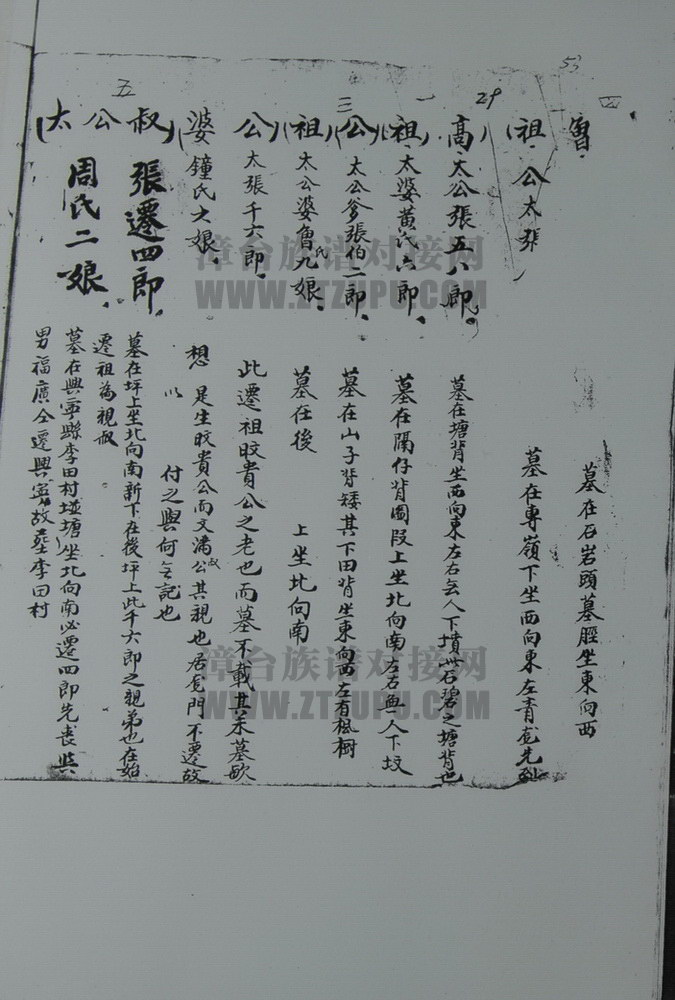 53
四
曾
墓在石岩頭墓脛坐東向西
(祖公太張
墓在專嶺下坐西向東左青龍先到
29
高)太公張五八郎
墓在塘背坐西向東左右无人下墳此石碧之塘背也
一
(祖)太婆黄氏六郎
墓在隔仔背圆段上坐北向南左右無人下坟
(公)太公爹張伯二郎
墓在山子背矮其下田背坐東向西左有楓樹
三
(祖)太公婆魯氏九娘
墓在後 上坐北向南
公)太張千六郎
此遷祖旼貴公之老也而墓不載其未墓歟
婆鍾氏大娘
想 是生旼貴公而文滿公其親也居龙門不遷故
以 付之與何无記也
(叔公太)
五
張遷四郎
墓在坪上坐北向南新下在後坪上此千六郎之親弟也在始
遷祖為親叔
周氏二娘
墓在興寧縣李田村㘭塘坐北向南必遷四郎先喪與
男福廣仝遷興寧故塟李田村
漳台族谱对接网
WWW.ZTZUPU.COM
漳台族谱对接网
WWW.ZTZUPU.COM